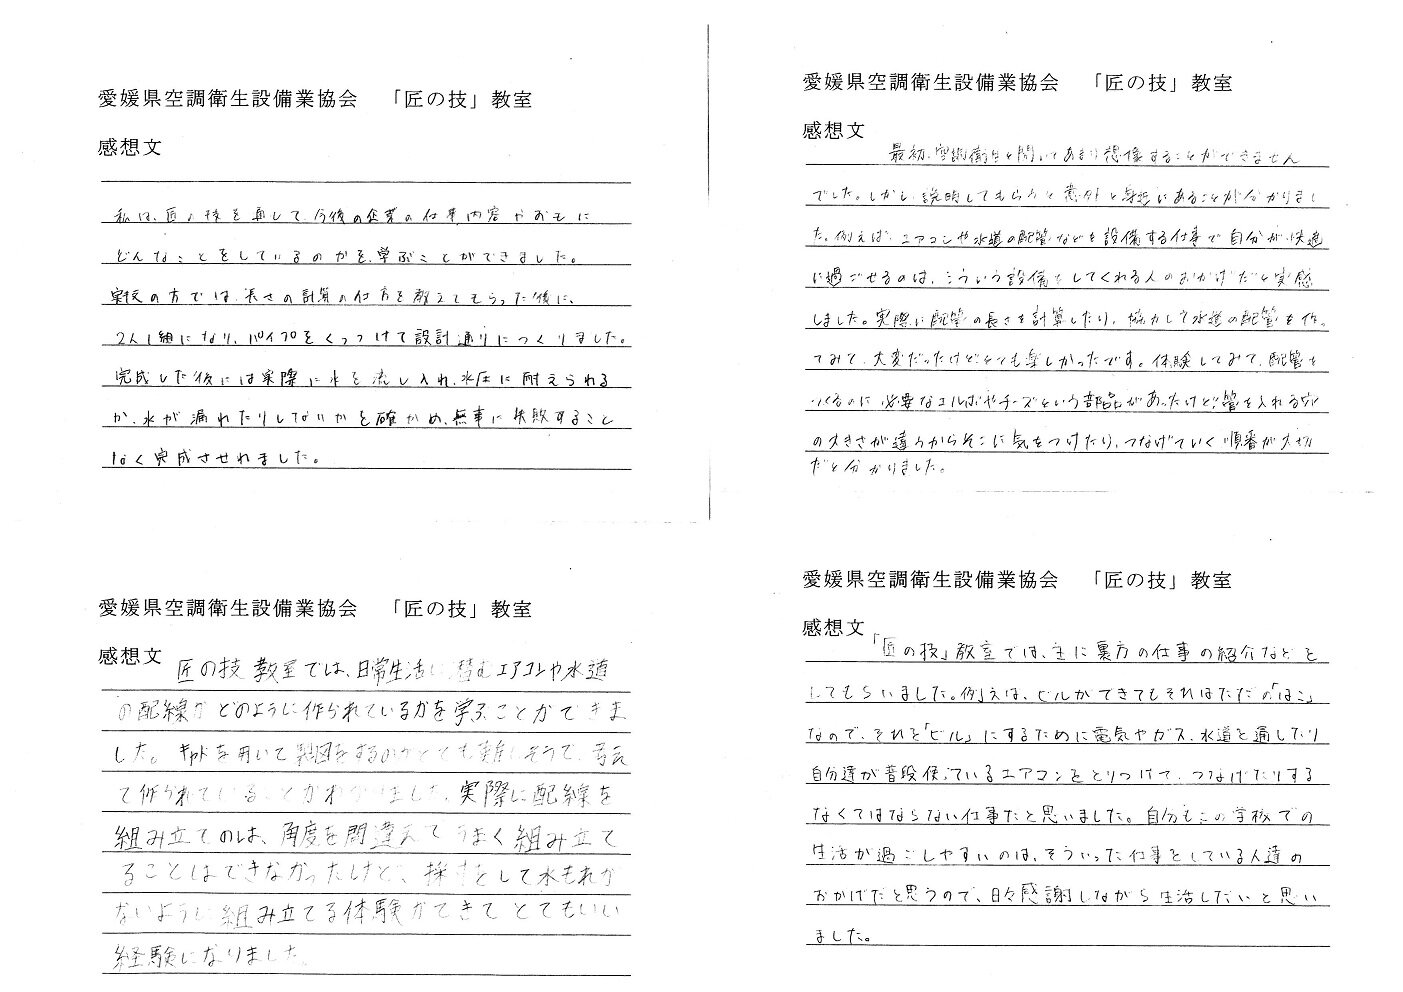 愛媛県空調衛生設備業協会 「匠の技」教室
感想文
私は、匠の技を通して今後の企業の仕事内容やおもに
どんなことをしているのかを、学ぶことができました。
実技の方では、長さの計算の仕方を教えてもらった後に、
2人1組になり、パイプをくっつけて設計通りにつくりました。
完成した後には実際に水を流し入れ、水圧に耐えられる
か、水が漏れたりしないかを確かめ、無事に失敗すること
なく完成させれました。
愛媛県空調衛生設備業協会 「匠の技」教室
感想文
最初、空調衛生と聞いてあまり想像することができません
でした。しかし、説明してもらうと意外と身近にあることが分かりまし
た。例えば、エアコンや水道の配管などを設備する仕事で自分が、快適
に過ごせるのは、こういう設備をしてくれる人のおかげだと実感
しました。実際に配管の長さを計算したり、協力して水道の配管を作っ
てみて、大変だったけどとても楽しかったです。体験してみて、配管を
つくるのに必要なエルボやチーズという部品があったけど、管を入れる穴
の大きさが違うからそこに気をつけたり、つなげていく順番が大切
だと分かりました。
愛媛県空調衛生設備業協会 「匠の技」教室
感想文
匠の技 教室では、日常生活に潜むエアコンや水道
の配線がどのように作られているかを学ぶことができま
した。キャドを用いて製図をするのがとても難しそうで、考え
て作られていることがわかりました。実際に配線を
組み立てのは、角度を間違えてうまく組み立て
ることはできなかったけど、として水もれが
ないように組み立てる体験ができてとてもいい
経験になりました。
愛媛県空調衛生設備業協会 「匠の技」教室
感想文
「匠の技」教室では、主に裏方の仕事の紹介などを
してもらいました。例えば、ビルができてもそれはただの「はこ」
なので、それを「ビル」にするために電気やガス、水道を通したり
自分達が普段使っているエアコンをとりつけて、つなげたりする
なくてはならない仕事だと思いました。自分もこの学校での
生活が過ごしやすいのは、そういった仕事をしている人達の
おかげだと思うので、日々感謝しながら生活したいと思い
ました。